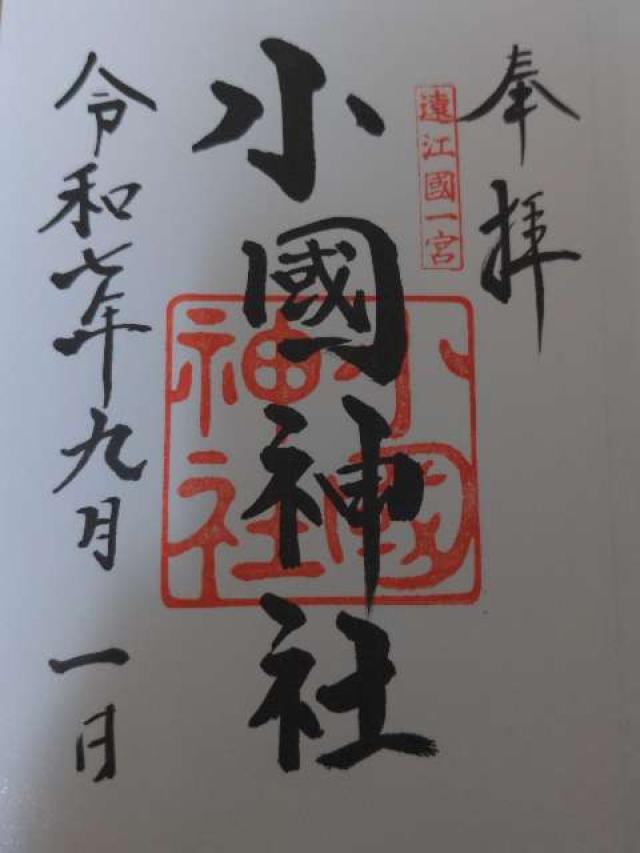 奉拝
遠江國一宮
小國神社
小國
神社
令和七年九月一日